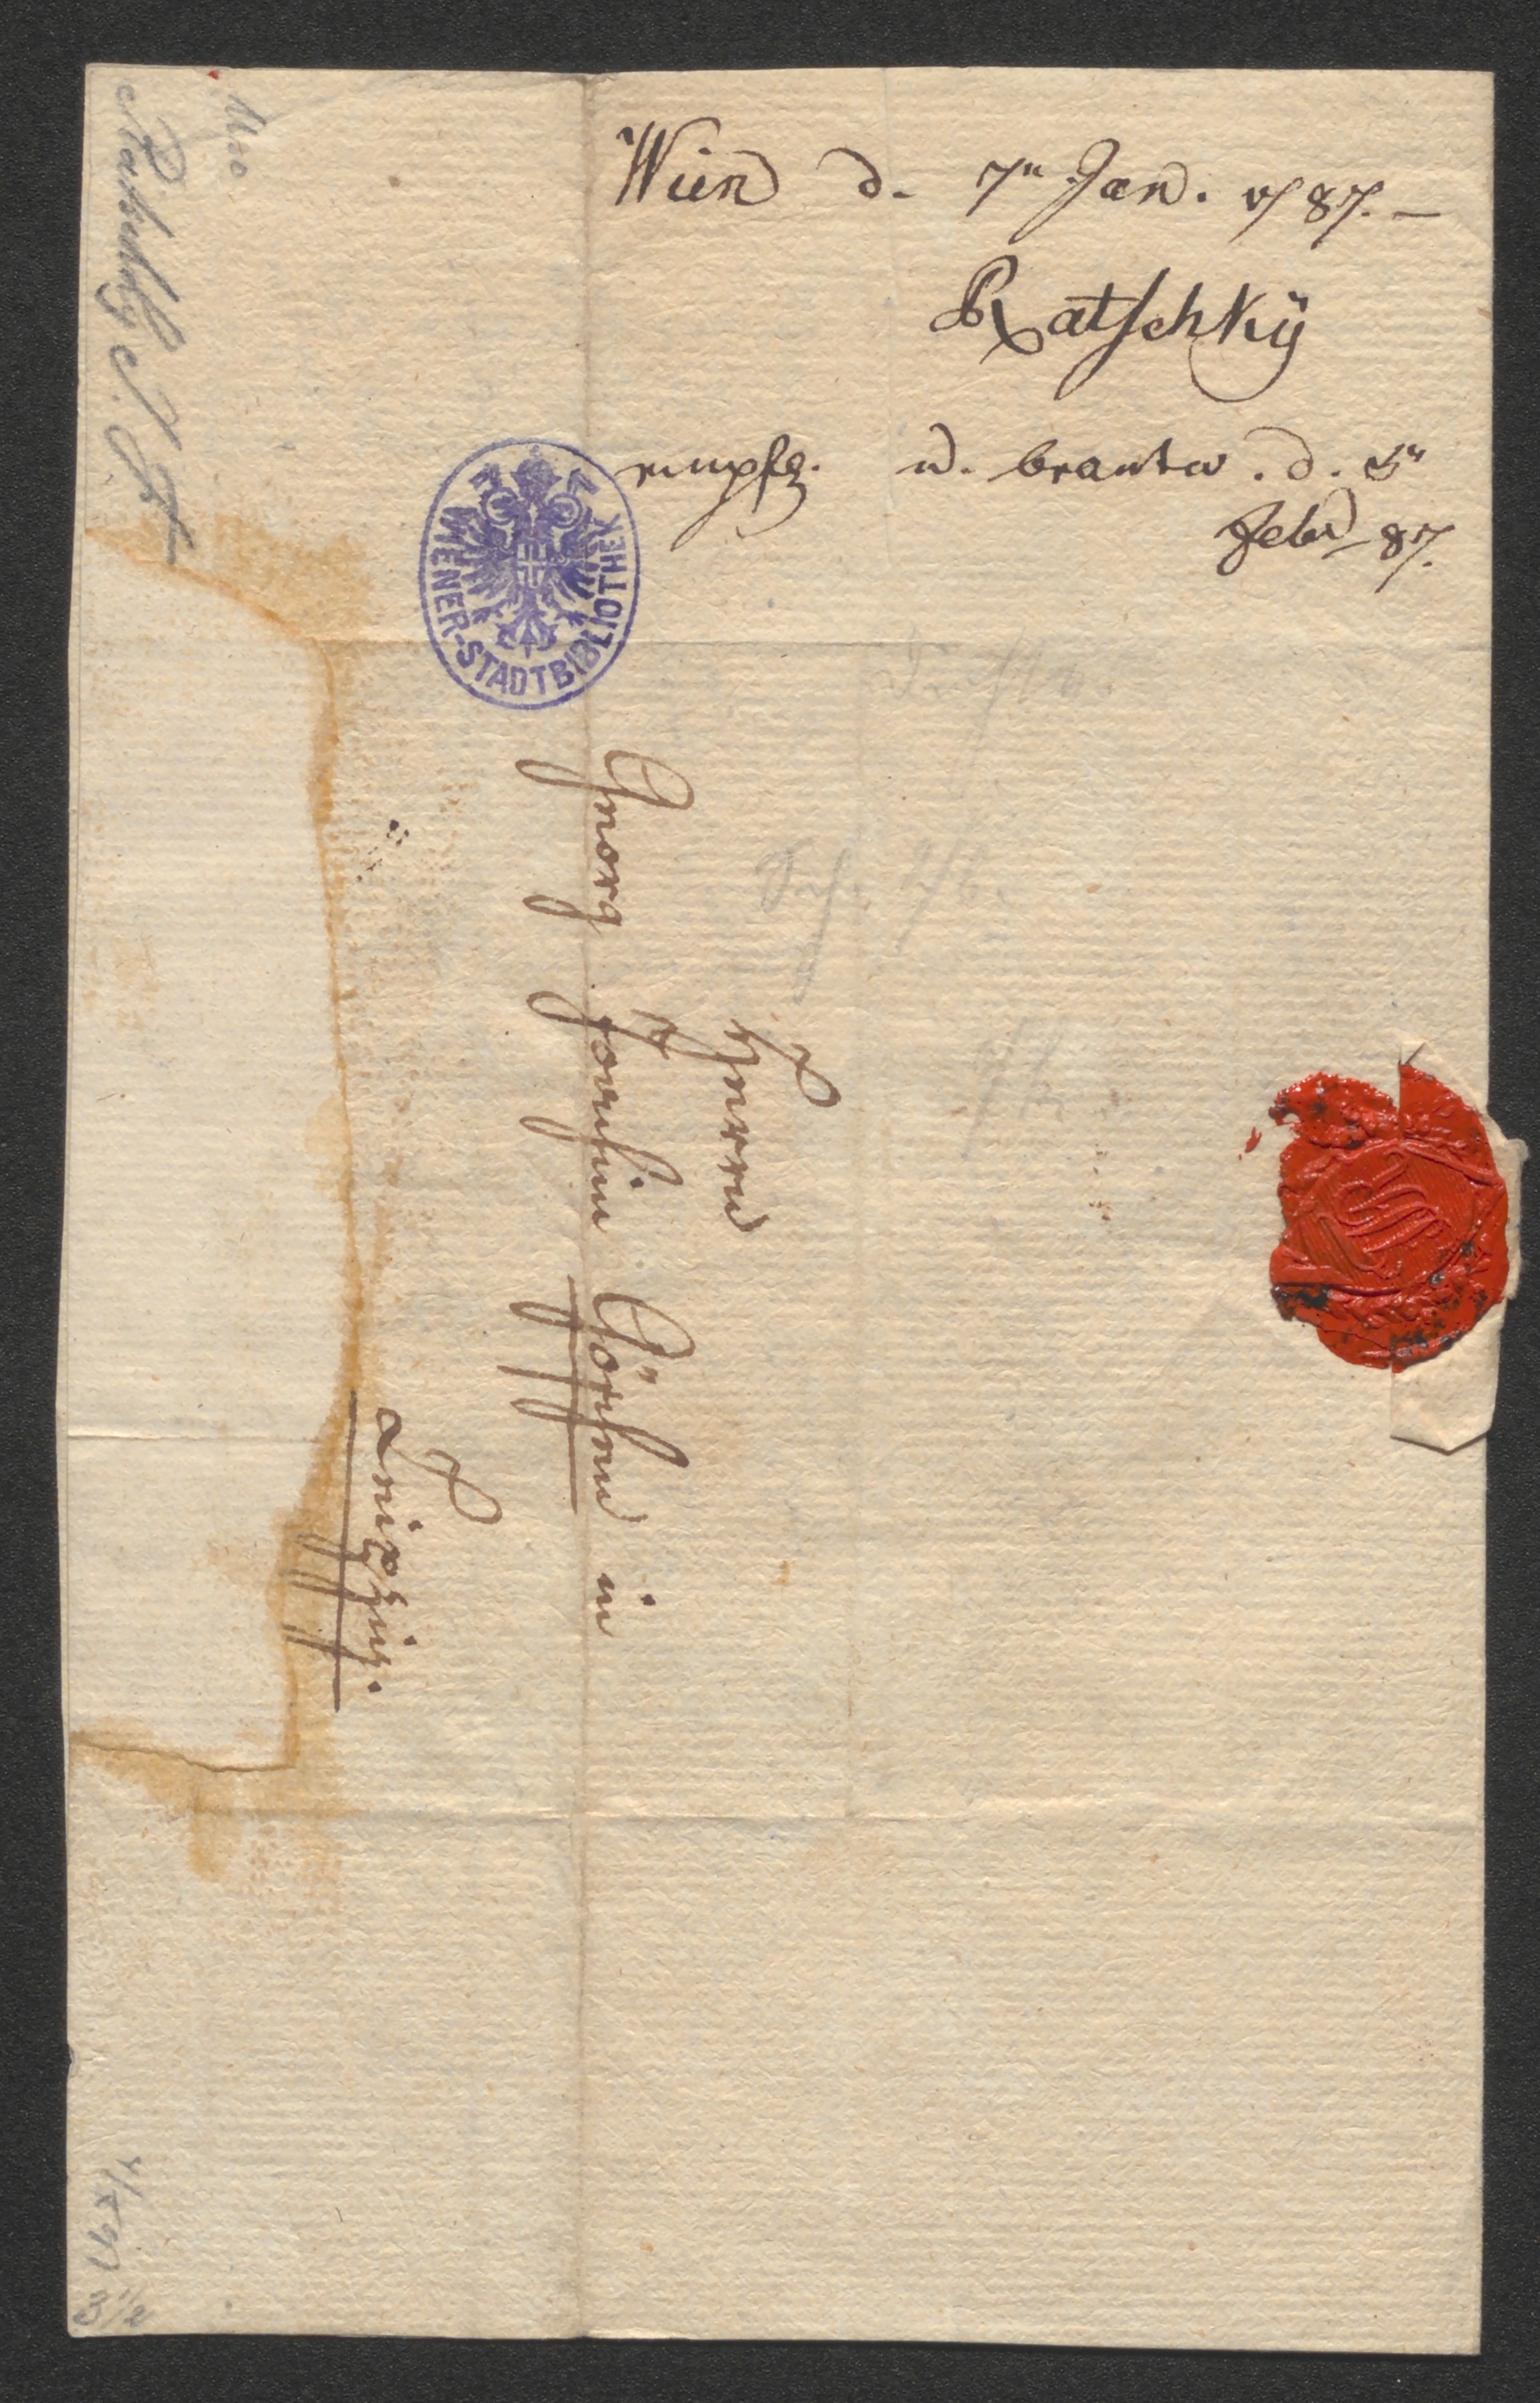 Wien d. 7n Jan. 787. –
Ratschky
empfg. u. beantw. d. 5n
Febr 87.
WIENER-STADTBIBLIOTHEK
Herrn
Georg Joachim Göschen in
Leipzig.
Ratschky J. F.
3 1/2